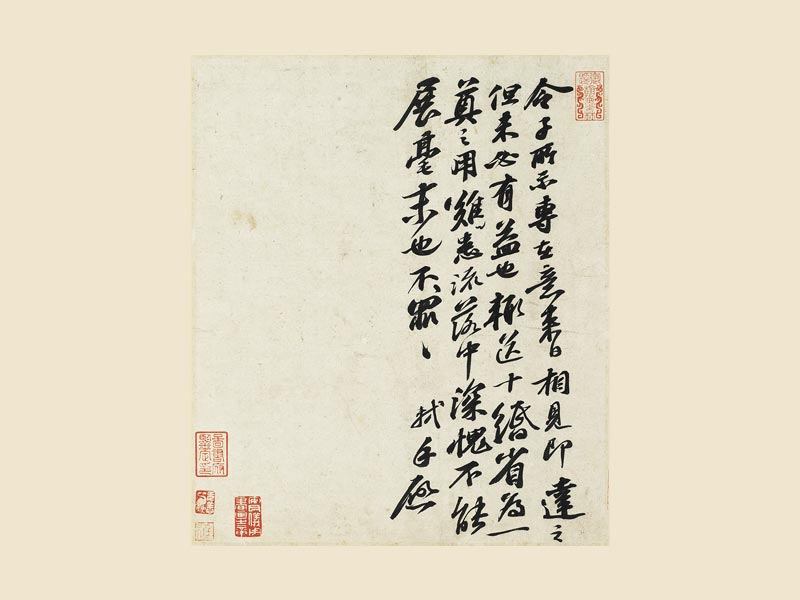 令子所示專在意來日相見即達之
但未必有益也輒送十緡省為一
奠之用難患流落中深愧不能
展毫末也不罪ヽ 軾手啟